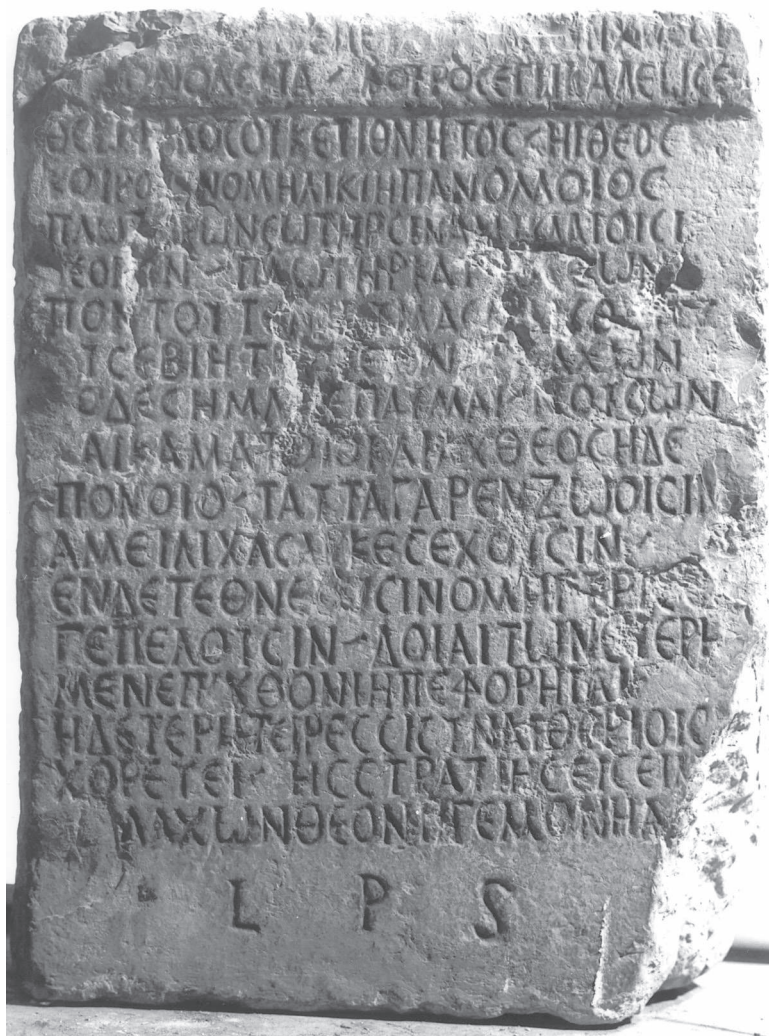 ΚΟΥΡΟΣ ΕΓΩ ΚΑΛΕΩ ΣΕ
ΘΕΩ ΦΙΛΟΣ ΟΥΚΕΤΙ ΘΝΗΤΟΣ ΗΙΘΕΟΣ
ΟΜΗΛΙΚΙΗ ΠΑΝΟΜΟΙΟΣ
ΠΛΩΤΗΡΩΝ ΣΩΤΗΡΣΙΝ ΑΜΥΚΛΑΙΟΙΣΙ
ΘΕΟΙΣΙΝ ΠΛΩΤΗΡ ΚΑΥΤΟΣ ΕΩΝ
ΠΟΝΤΟΥ
ΕΥΣΕΒΙΗ ΤΡΟΦΕΩΝ ΛΑΧΩΝ
ΤΟΔΕ ΣΗΜΑ ΠΕΠΑΥΜΑΙ ΝΟΥΣΩΝ
ΚΑΙ ΚΑΜΑΤΟΙΟ ΚΑΙ ΑΧΘΕΟΣ ΗΔΕ
ΠΟΝΟΙΟ ΤΑΥΤΑ ΓΑΡ ΕΝ ΖΩΟΙΣΙΝ
ΑΜΕΙΛΙΧΑ ΣΑΡΚΕΣ ΕΧΟΥΣΙΝ
ΕΝ ΔΕ ΤΕΘΝΕΙΩΣΙΝ ΟΜΗΓΥΡΙΕΣ
ΓΕ ΠΕΛΟΥΣΙΝ ΔΟΙΑΙ ΤΩΝ ΕΤΕΡΗ
ΜΕΝ ΕΠΙΧΘΟΝΙΗ ΠΕΦΟΡΗΤΑΙ
Η Δ ΕΤΕΡΗ ΤΕΙΡΕΣΣΙ ΣΥΝ ΑΙΘΕΡΙΟΙΣΙ
ΧΟΡΕΥΕΙ ΗΣ ΣΤΡΑΤΙΗΣ ΕΙΣ ΕΙΜΙ
ΛΑΧΩΝ ΘΕΟΝ ΗΓΕΜΟΝΗΑ
L P S